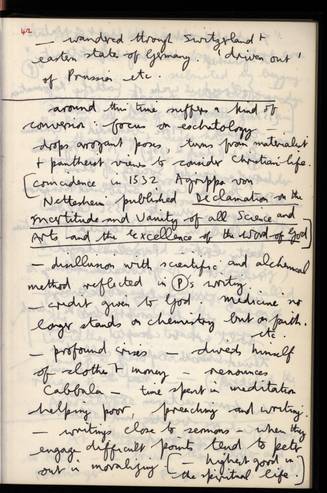 42
— wandered through Switzerland +
eastern state of Germany 'driven out'
of Prussia etc.
around this time suffers a kind of
conversion : focus on eschatology —
drops arrogant poses, turns from materialist
+ pantheist views to consider Christian life.
[coincidence in 1532 Agrippa von
Nettesheim published Declamation on the
Incertitude and Vanity of all Science and
Arts and the excellence of the Word of God]
— disillusion with scientific and alchemical
method reflected in Ⓟs writing
— credit given to God — medicine no
longer stands on chemistry but on faith.
etc.
— profound crises — divests himself
of clothes + money — renounces
Cabbala — time spent in meditation
helping poor, preaching and writing.
— writings close to sermons — when they
engage difficult points tend to peter
out in moralizing [— highest good is
the spiritual life.]